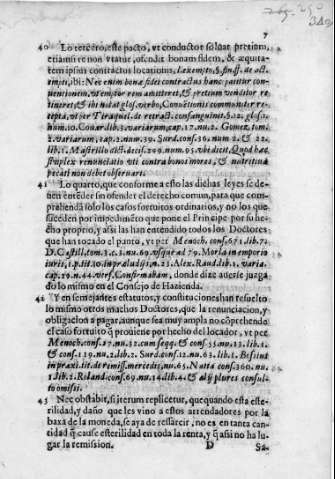 7
40 Lo tercero, este pacto, vt conductor soluat pretium,
etiam si re non vtatur, ofendit bonam fidem, & æquita-
tem ipsius contractus locationis, l. ex empto, §. fin. ff. de act.
empti, ibi: Nec enim bonæ fidei contractus hanc patitur con-
uentionem, vt emptor rem amitteret, & pretium venditor re-
tineret, & ibi notat glos. verbo, Conuentionis communiter re-
cepta, vt per Tiraquel. de retract. consanguinit. §.
num. 10. Couar. lib. 3. variarum, cap. 17. nu. 2. Gomez, tom.
2. variarum, cap. 2. num. 39. Surd. cons. 36. num. 2. & 22.
lib. 1. Mastrillo dict. decis. 29. num. 95. vbi dicit, Quod hæc
simplex renunciatio vti contra bonos mores, & nutritiua
peccati non debet obseruari.
41 Lo quarto, que conforme a esto las dichas leyes se de-
uen entender sin ofender el derecho comun, para que com-
prahenda solo los casos fortuitos ordinarios, y no los que
suceden por impedimẽto que pone el Principe por su he-
cho proprio, y assi las han entendido todos los Doctores
que han tocado el punto, vt per Menoch. cons. 671. lib. 7.
D. Castill. tom. 3. c. 3. nu. 69. vsque ad 79. Morla in emporio
iuris, 1. p. tit. 10. in præludijs, n. 23. Alex. Raud. lib. 1. varia.
cap. 20. n. 44. vers. Confirmabam, donde dize auerse juzga-
do lo mismo en el Consejo de Hazienda.
42 Y en semejantes estatutos, y constituciones han resuelto
lo mismo otros muchos Doctores, que la renunciacion, y
obligacion a pagar, aunque sea muy ampla no cõprehendo
el caso fortuito q̃ prouiene por hecho del locador, vt per
Menoch. cons. 17. nu. 32. cum seqq. & cons. 35. nu. 13. lib. 1.
& cons. 119. nu. 2. lib. 2. Surd. cons. 12. nu. 63. lib. 1.
in praxi. tit. de remiss. mercedis, nu. 65. Natta cons. 260. nu.
1. lib. 2. Roland. cons. 69. nu. 14. lib. 4. & alij plures consul-
to omissi.
43 Nec obstabit, si iterum replicetur, que quando esta este-
rilidad, y daño que les vino a estos arrendadores por la
baxa de la moneda, se aya de resarcir, no es en tanta can-
tidad q̃ cause esterilidad en toda la renta, y q̃ assi no ha lu-
gar la remission. D Sa-